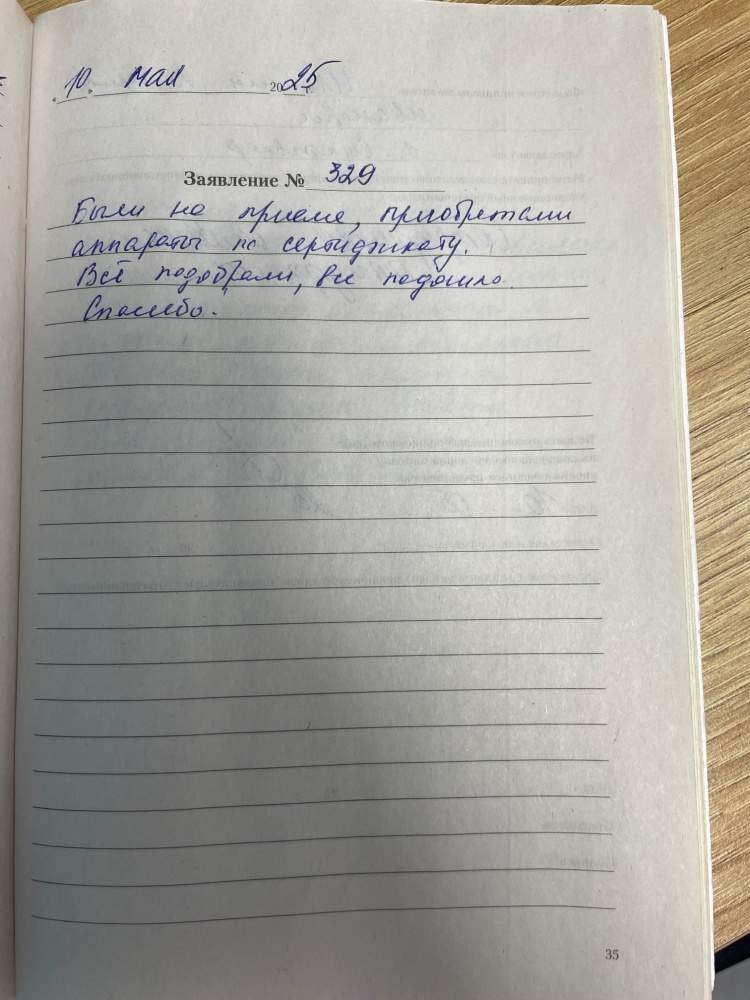 10. мая 2025
Заявление № 329
Были на приеме, приобретали
аппараты по сертификату.
Всё подобрали, все подошло.
Спасибо.
35